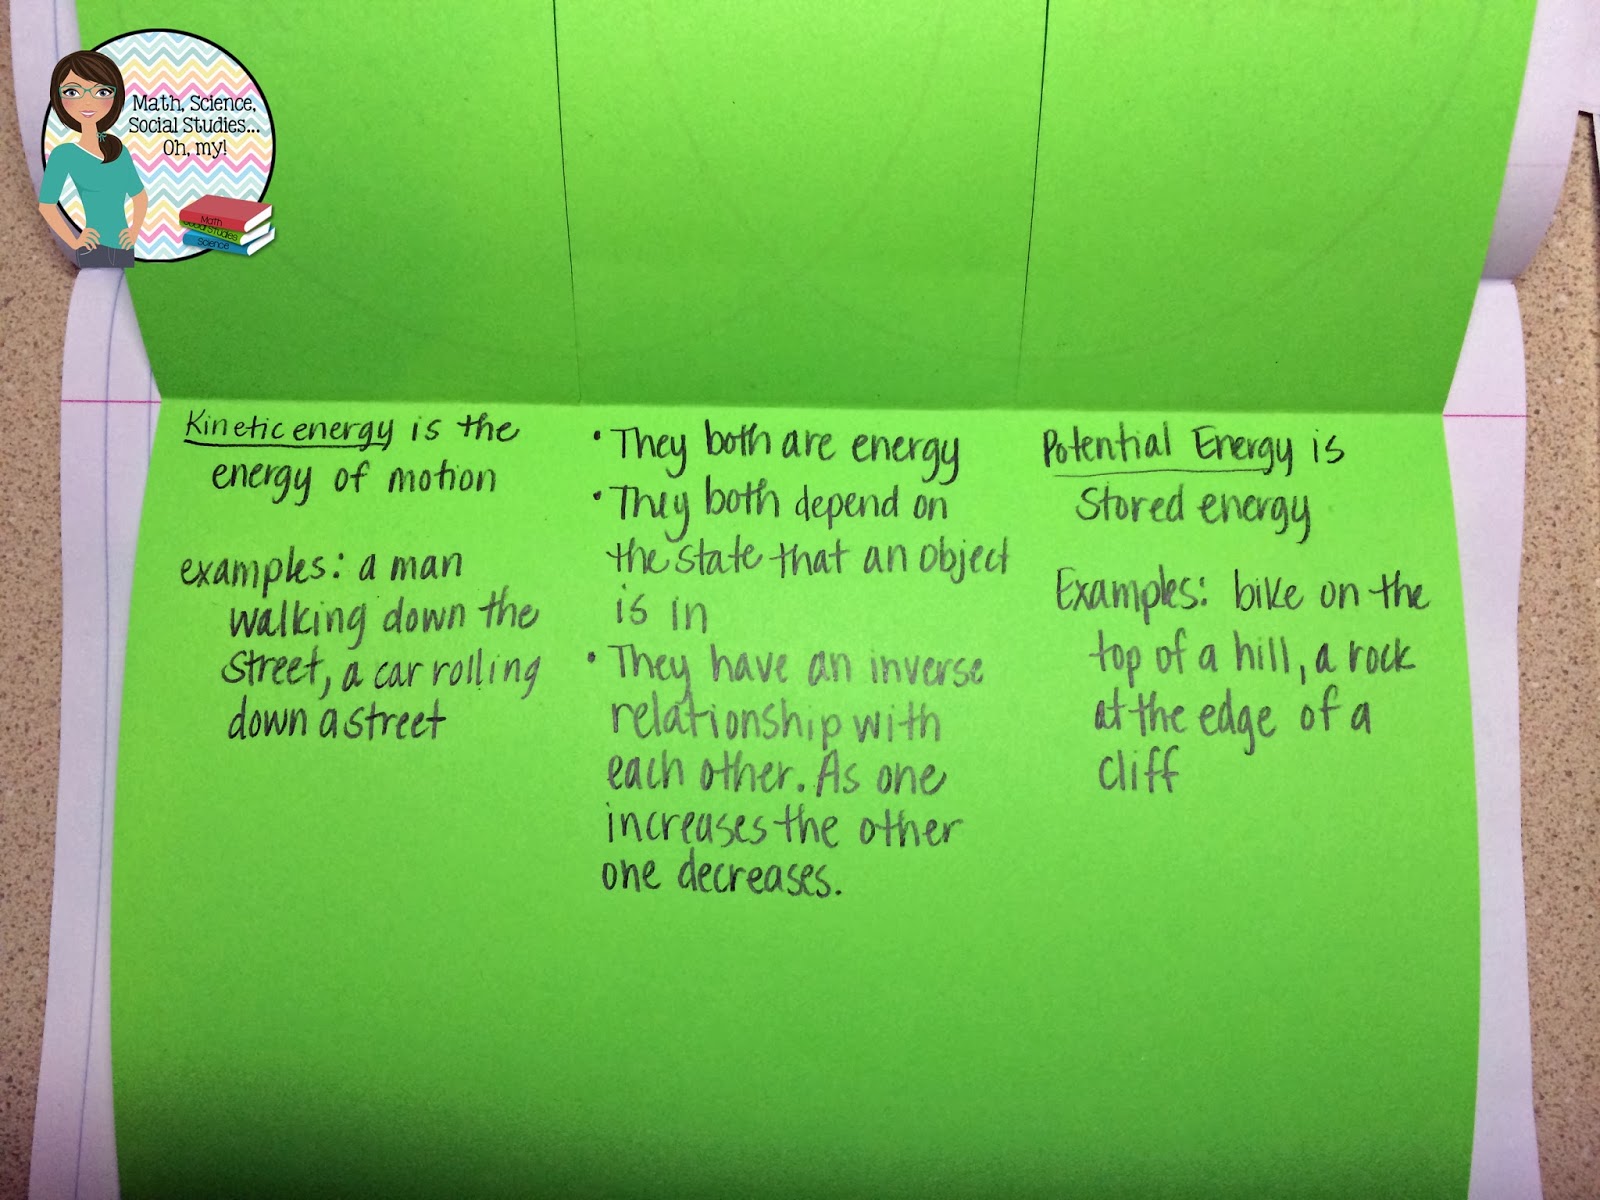 Math, Science,
Social Studies...
Oh, my!
Math
Social Studies
Science
Kinetic energy is the
energy of motion
examples: a man
walking down the
street, a car rolling
down a street
• They both are energy
• They both depend on
the state that an object
is in
• They have an inverse
relationship with
each other. As one
increases the other
one decreases.
Potential Energy is
Stored energy
Examples: bike on the
top of a hill, a rock
at the edge of a
cliff